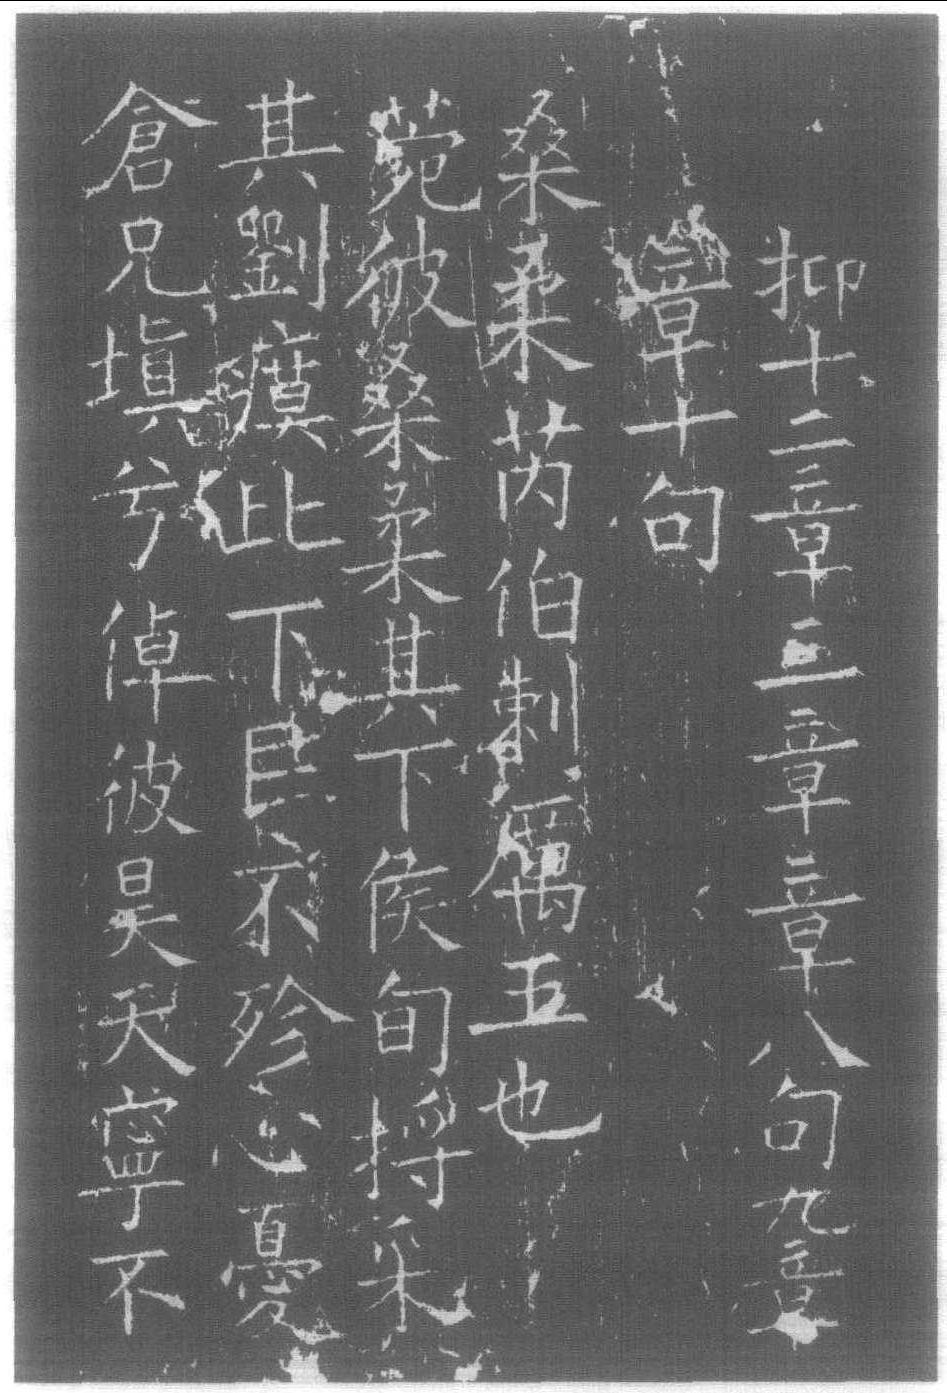 抑十二章三章章八句九章
章十句
桑柔芮伯刺厲王也
菀彼桑柔其下侯旬捋采
其劉瘼此下民不殄心憂
倉兄塡兮倬彼昊天寧不